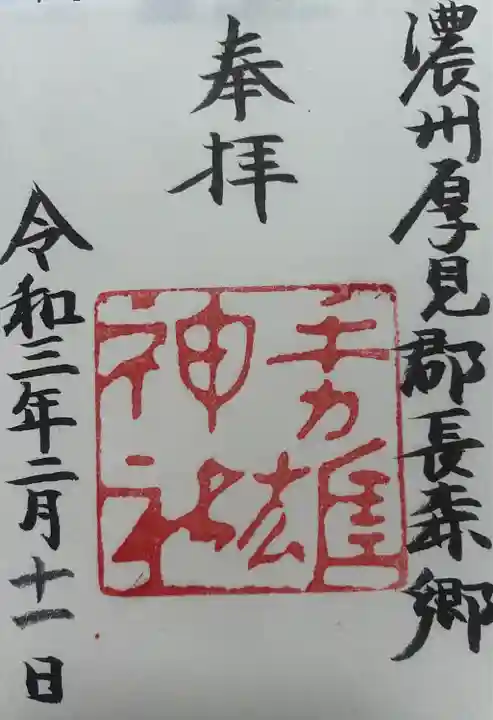 濃州厚見郡長森郷
奉拝
手力雄
神社
令和三年二月十一日